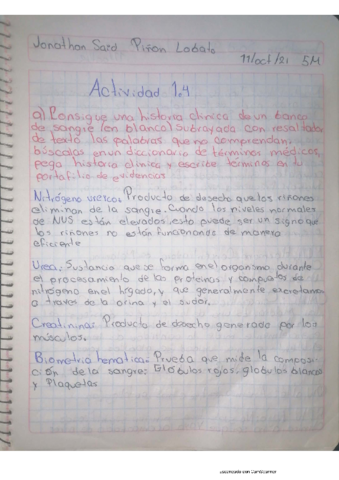 Jonathan Said Piñon Lobato
11/oct/21 5M
Actividad 1.4
a) Consigue una historia clinica de un banco
de sangre (en blanco) subrayada con resaltador
de texto las palabras que no comprendan,
búscalas en un diccionario de términos médicos,
pega historia clínica y escribe términos en tu
portafolio de evidencias
Nitrógeno ureico: Producto de desecho que los riñones
eliminan de la sangre. Cuando los niveles normales
de NUS están elevados, esto puede ser un signo que
los riñones no están funcionando de manera
eficiente
Urea: Sustancia que se forma en el organismo durante
el procesamiento de las proteinas y compuestos de
nitrógeno en el hígado, y que generalmente excretamos
a traves de la orina y el sudor.
Creatinina: Producto de desecho generado por los
músculos.
Biometria hematica: Prueba que mide la composi-
ción de la sangre: Glóbulos rojos, globulos blancos
y Plaquetas
Escaneado con CamScanner